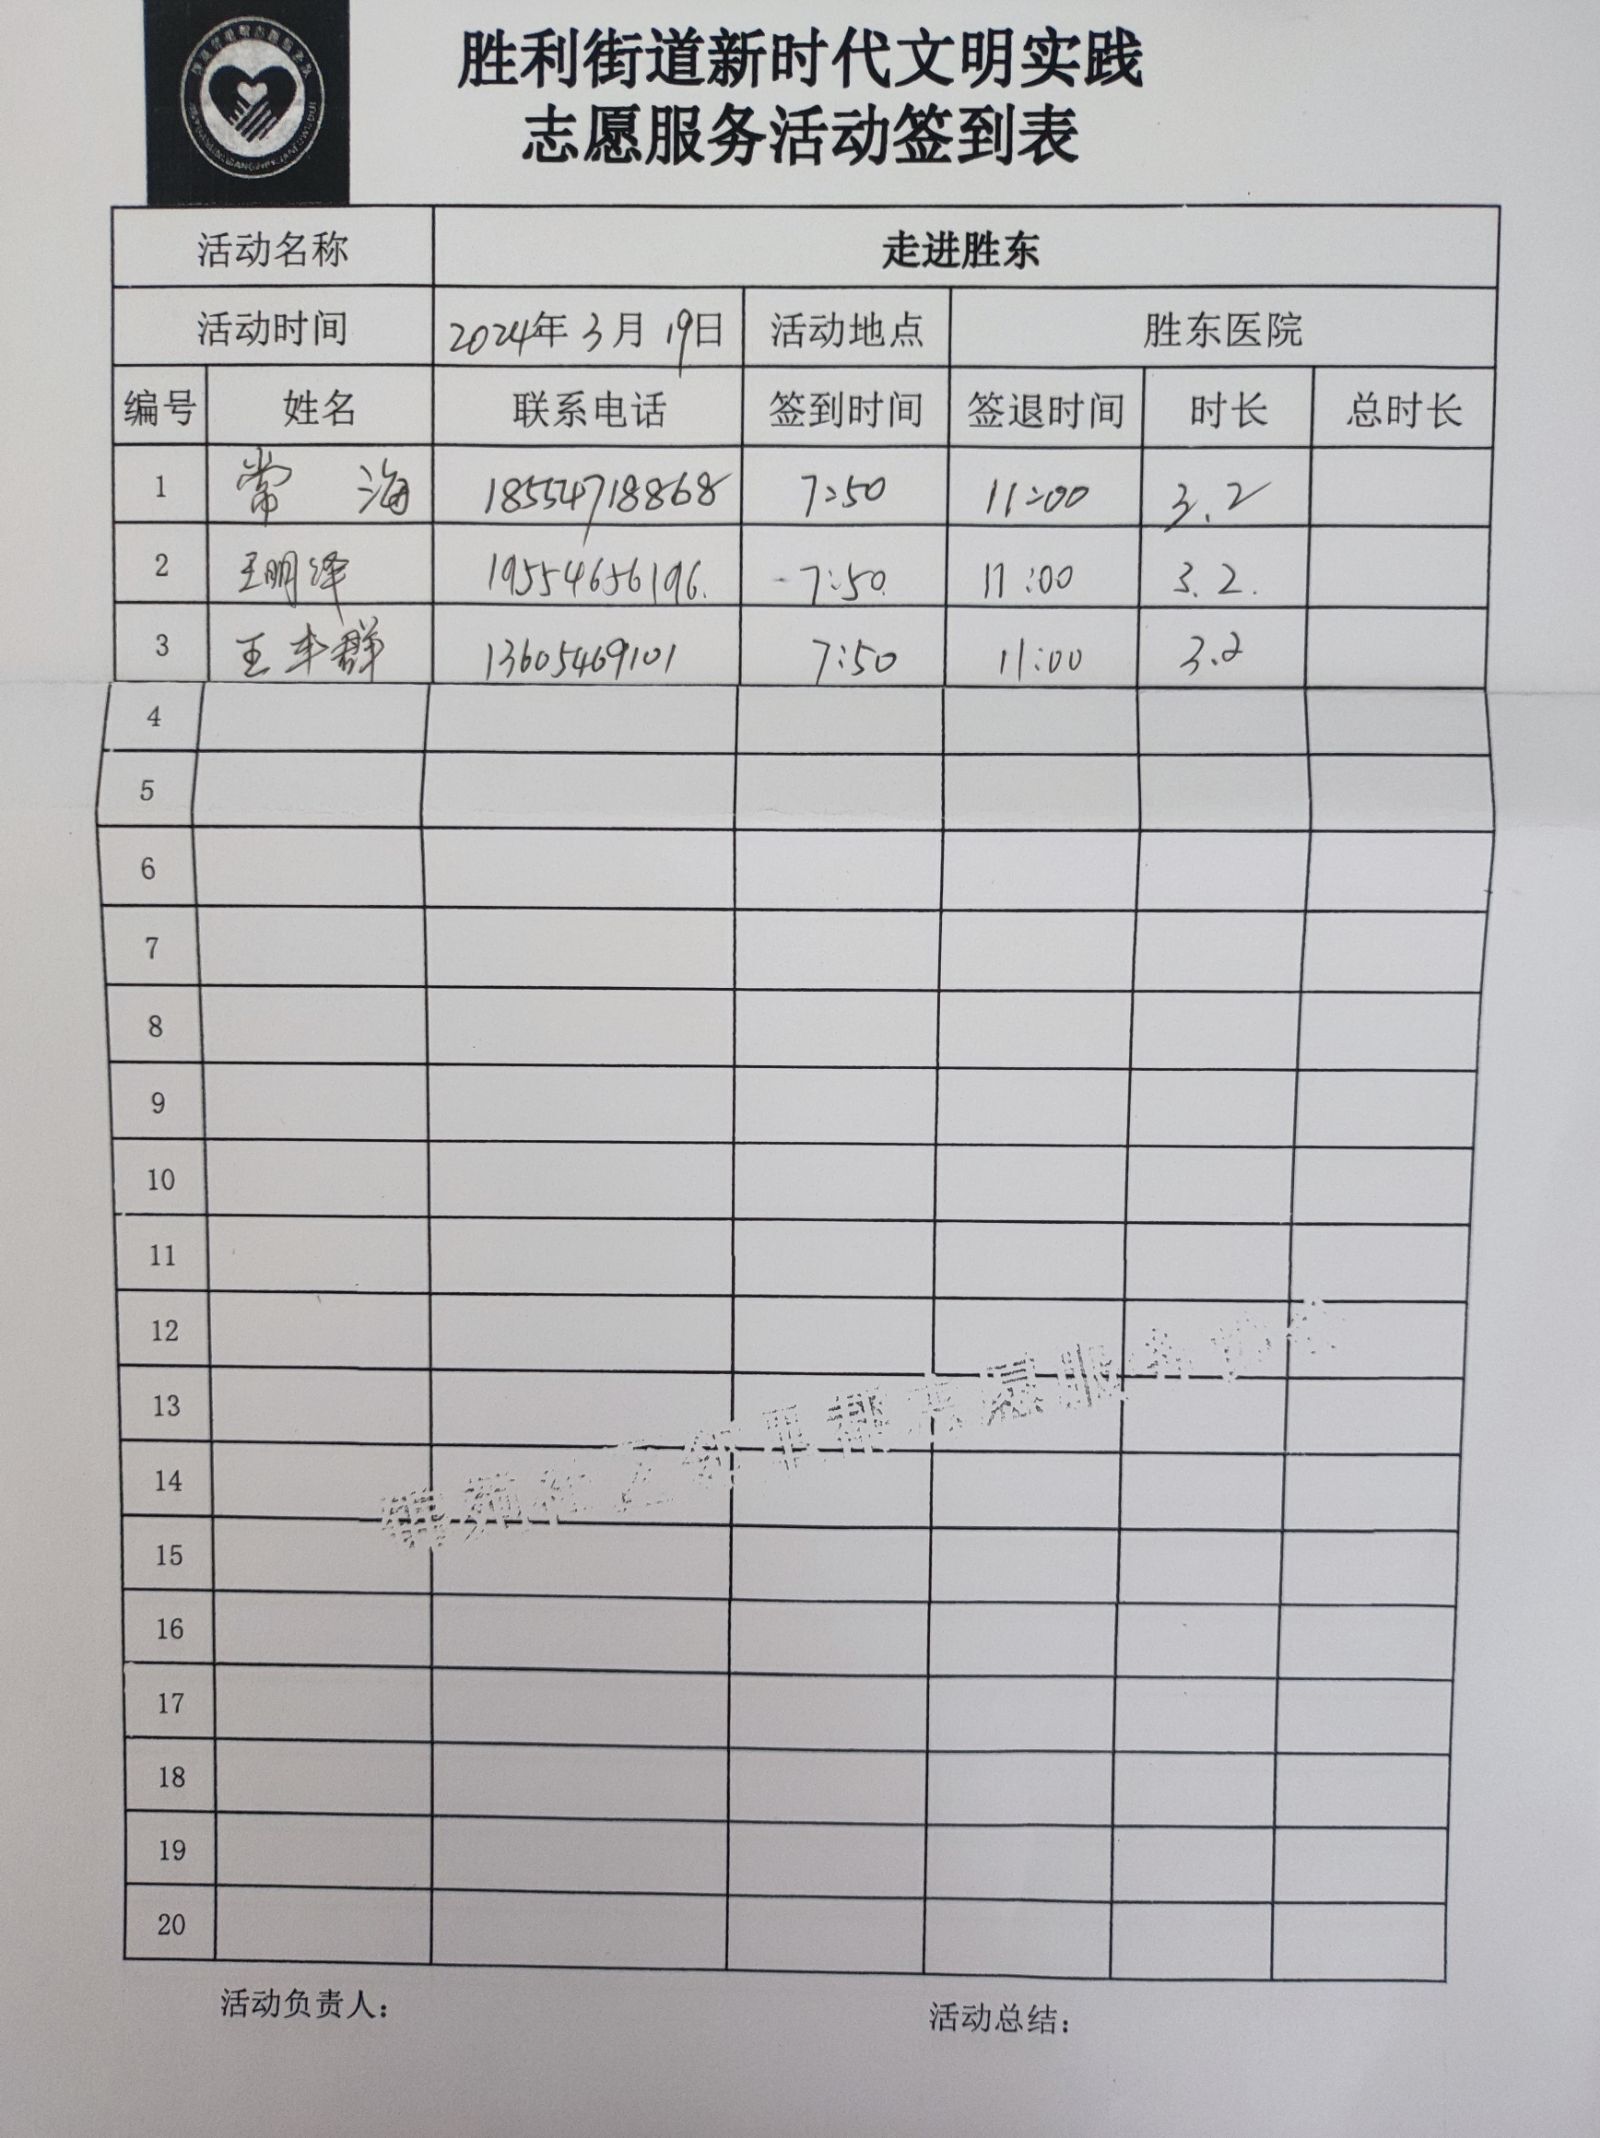 胜利街道新时代文明实践
志愿服务活动签到表
活动名称 走进胜东
活动时间 2024年3月19日 活动地点 胜东医院
编号 姓名 联系电话 签到时间 签退时间 时长 总时长
1 常海 18554718868 7:50 11:00 3.2
2 王明泽 19554656196. 7:50. 11:00 3.2.
3 王丰群 13605469101 7:50 11:00 3.2
4
5
6
7
8
9
10
11
12
13
14
15
16
17
18
19
20
活动负责人： 活动总结：